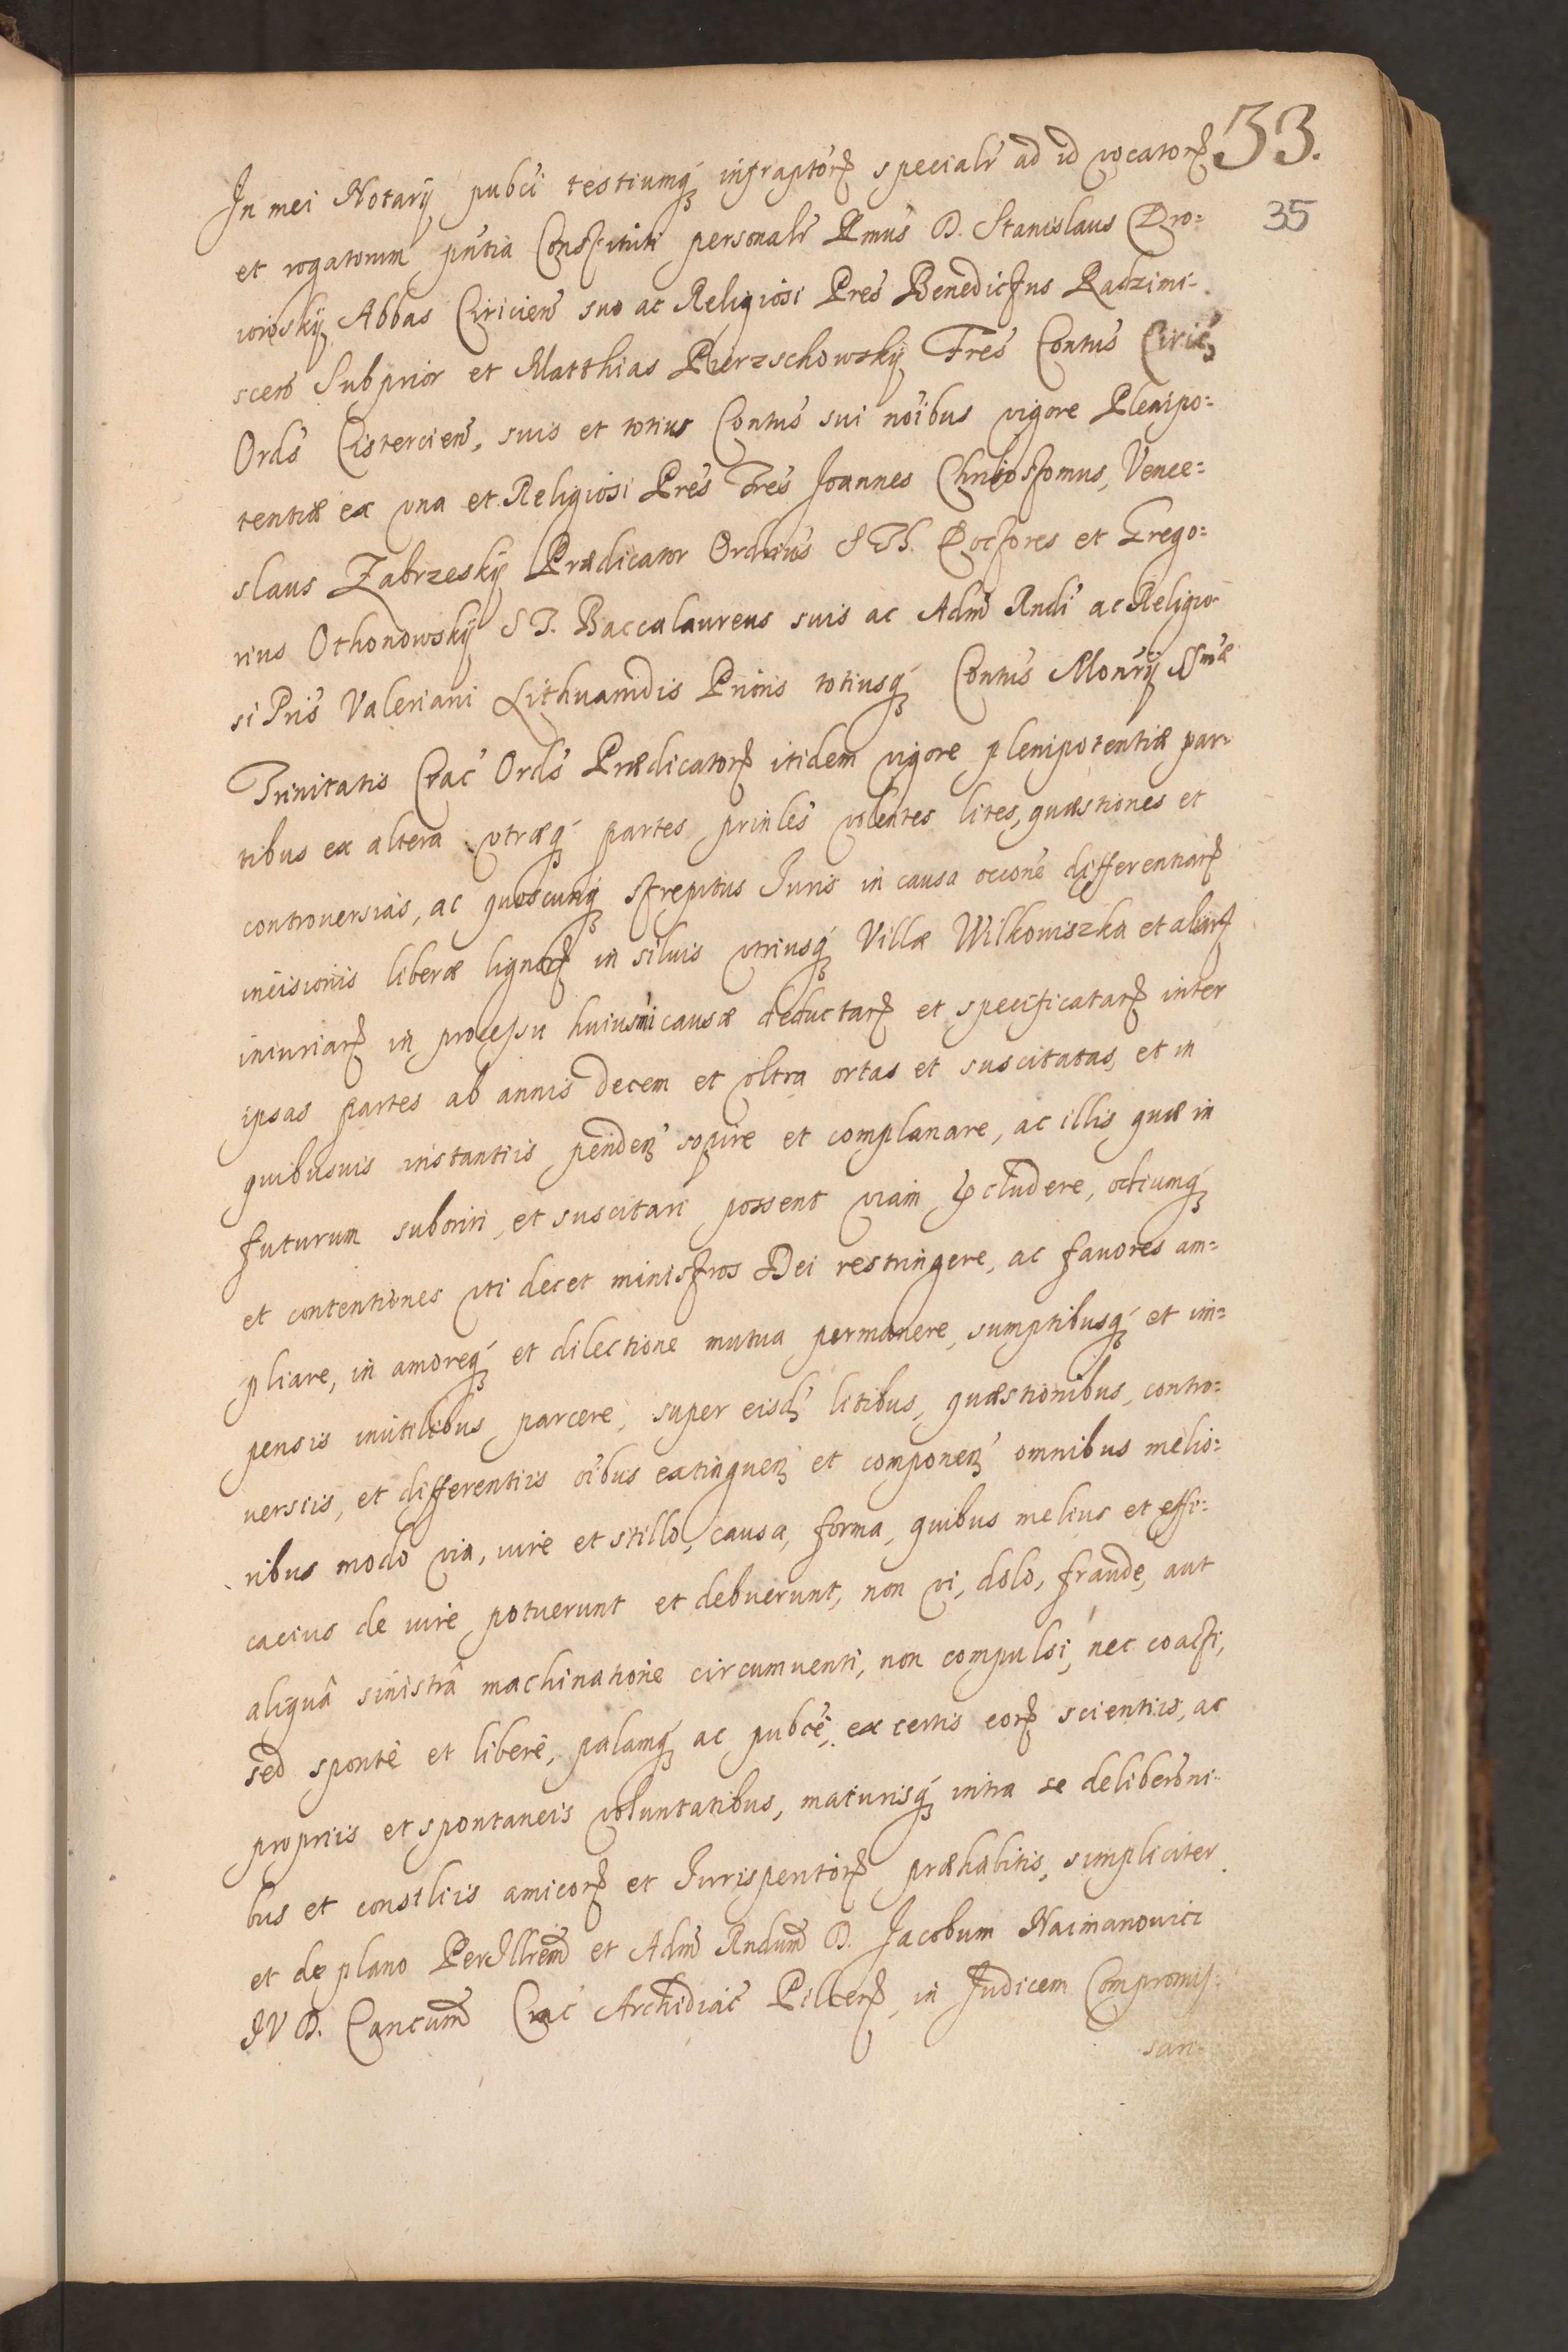 33.
35
In mei Notarij pubci testiumq́ꝫ infraptorꝝ specialr ad id vocatorꝝ
et rogatorum pñtia Constituti personalr Rmus D. Stanislaus Dro=
iowskij Abbas Ciricieñ suo ac Religiosi Pres Benedictus Radzimi-
sceñ Subprior et Matthias Pierzschowskij Fres Contus Ciricꝫ
Ords Cistercieñ, suis et totius Contus sui noibus vigore Plenipo=
tentiæ ex vna et Religiosi Pres Fres Joannes Chrisostomus, Vence=
slaus Zabrzeskij Prædicator Ordinis S Th. Doctores et Grego=
rius Othonowskij S T. Baccalaureus suis ac Adm Rndi ac Religio-
si Pris Valeriani Lithuanidis Prioris totiusq́ꝫ Contus Monrij SSmæ
Trinitatis Crac Ords Prædicatorꝝ itidem vigore plenipotentiæ par-
tibus ex altera vtræq́ꝫ partes prinles volentes lites, quæstiones et
controuersias, ac quoscunq́ꝫ strepitus Juris in causa occone differentiarꝝ
incisionis liberæ lignorꝝ in siluis vtriusq́ꝫ Villæ Wilkowiszka et aliarꝝ
iniuriarꝝ in processu huiusmi causæ deductarꝝ et specificatarꝝ inter
ipsas partes ab annis decem et vltra ortas et suscitatas, et in
quibusuis instantiis pendeñ sopire et complanare, ac illis quæ in
futurum suboriri, et suscitari possent viam p̃cludere, odiumq́ꝫ
et contentiones vti decet ministros Dei restringere, ac fauores am=
pliare, in amoreq́ꝫ et dilectione mutua permanere, sumptibusq́ꝫ et im=
pensis inutilibus parcere, super eisdꝫ litibus, quæstionibus, contro=
uersiis, et differentiis oibus extingueñ et componeñ omnibus melio=
ribus modo via, iure et stillo, causa, forma, quibus melius et effi=
cacius de iure potuerunt et debuerunt, non vi, dolo, fraude, aut
aliquâ sinistrâ machinatione circumuenti, non compulsi, nec coacti,
sed sponte et libere, palamq́ꝫ ac pubce, ex certis eorꝝ scientiis, ac
propriis et spontaneis voluntatibus, maturisq́ꝫ intra se deliberoni-
bus et consiliis amicorꝝ et Jurisperitorꝝ præhabitis, simpliciter
et de plano PerIllrem et Adm Rndum D. Jacobum Naimanouici
IV D. Cancum Crac Archidiac Pilcerꝝ, in Judicem Compromis-
sari-